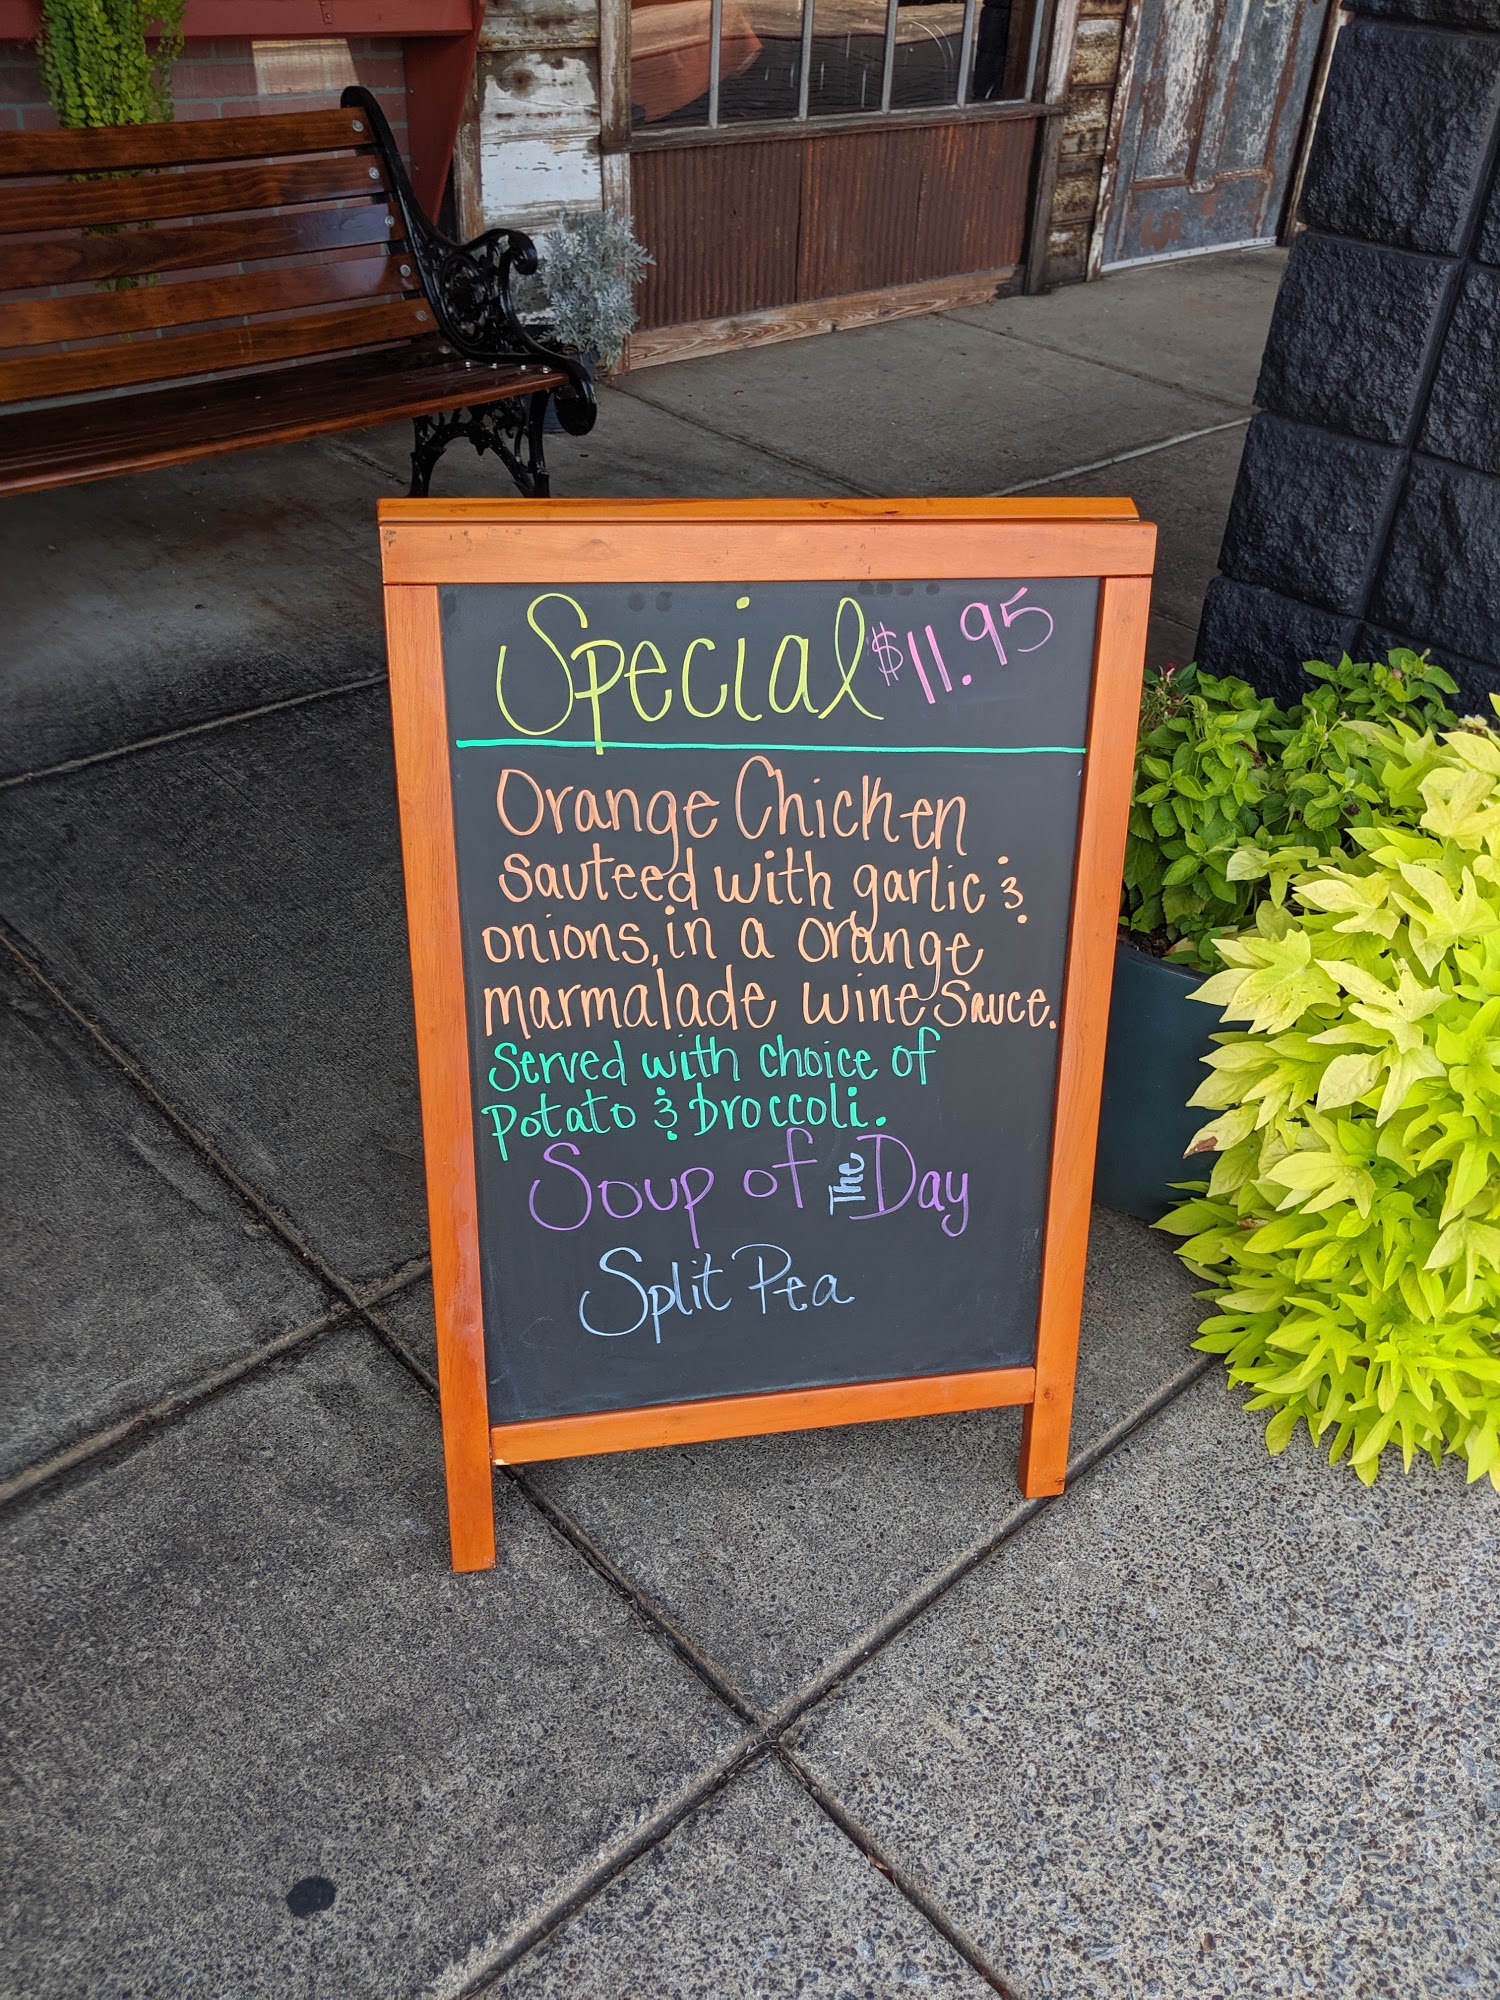 Special $11.95
Orange Chicken
sauteed with garlic &
onions, in a orange
marmalade wine sauce.
Served with choice of
potato & broccoli.
Soup of The Day
Split Pea